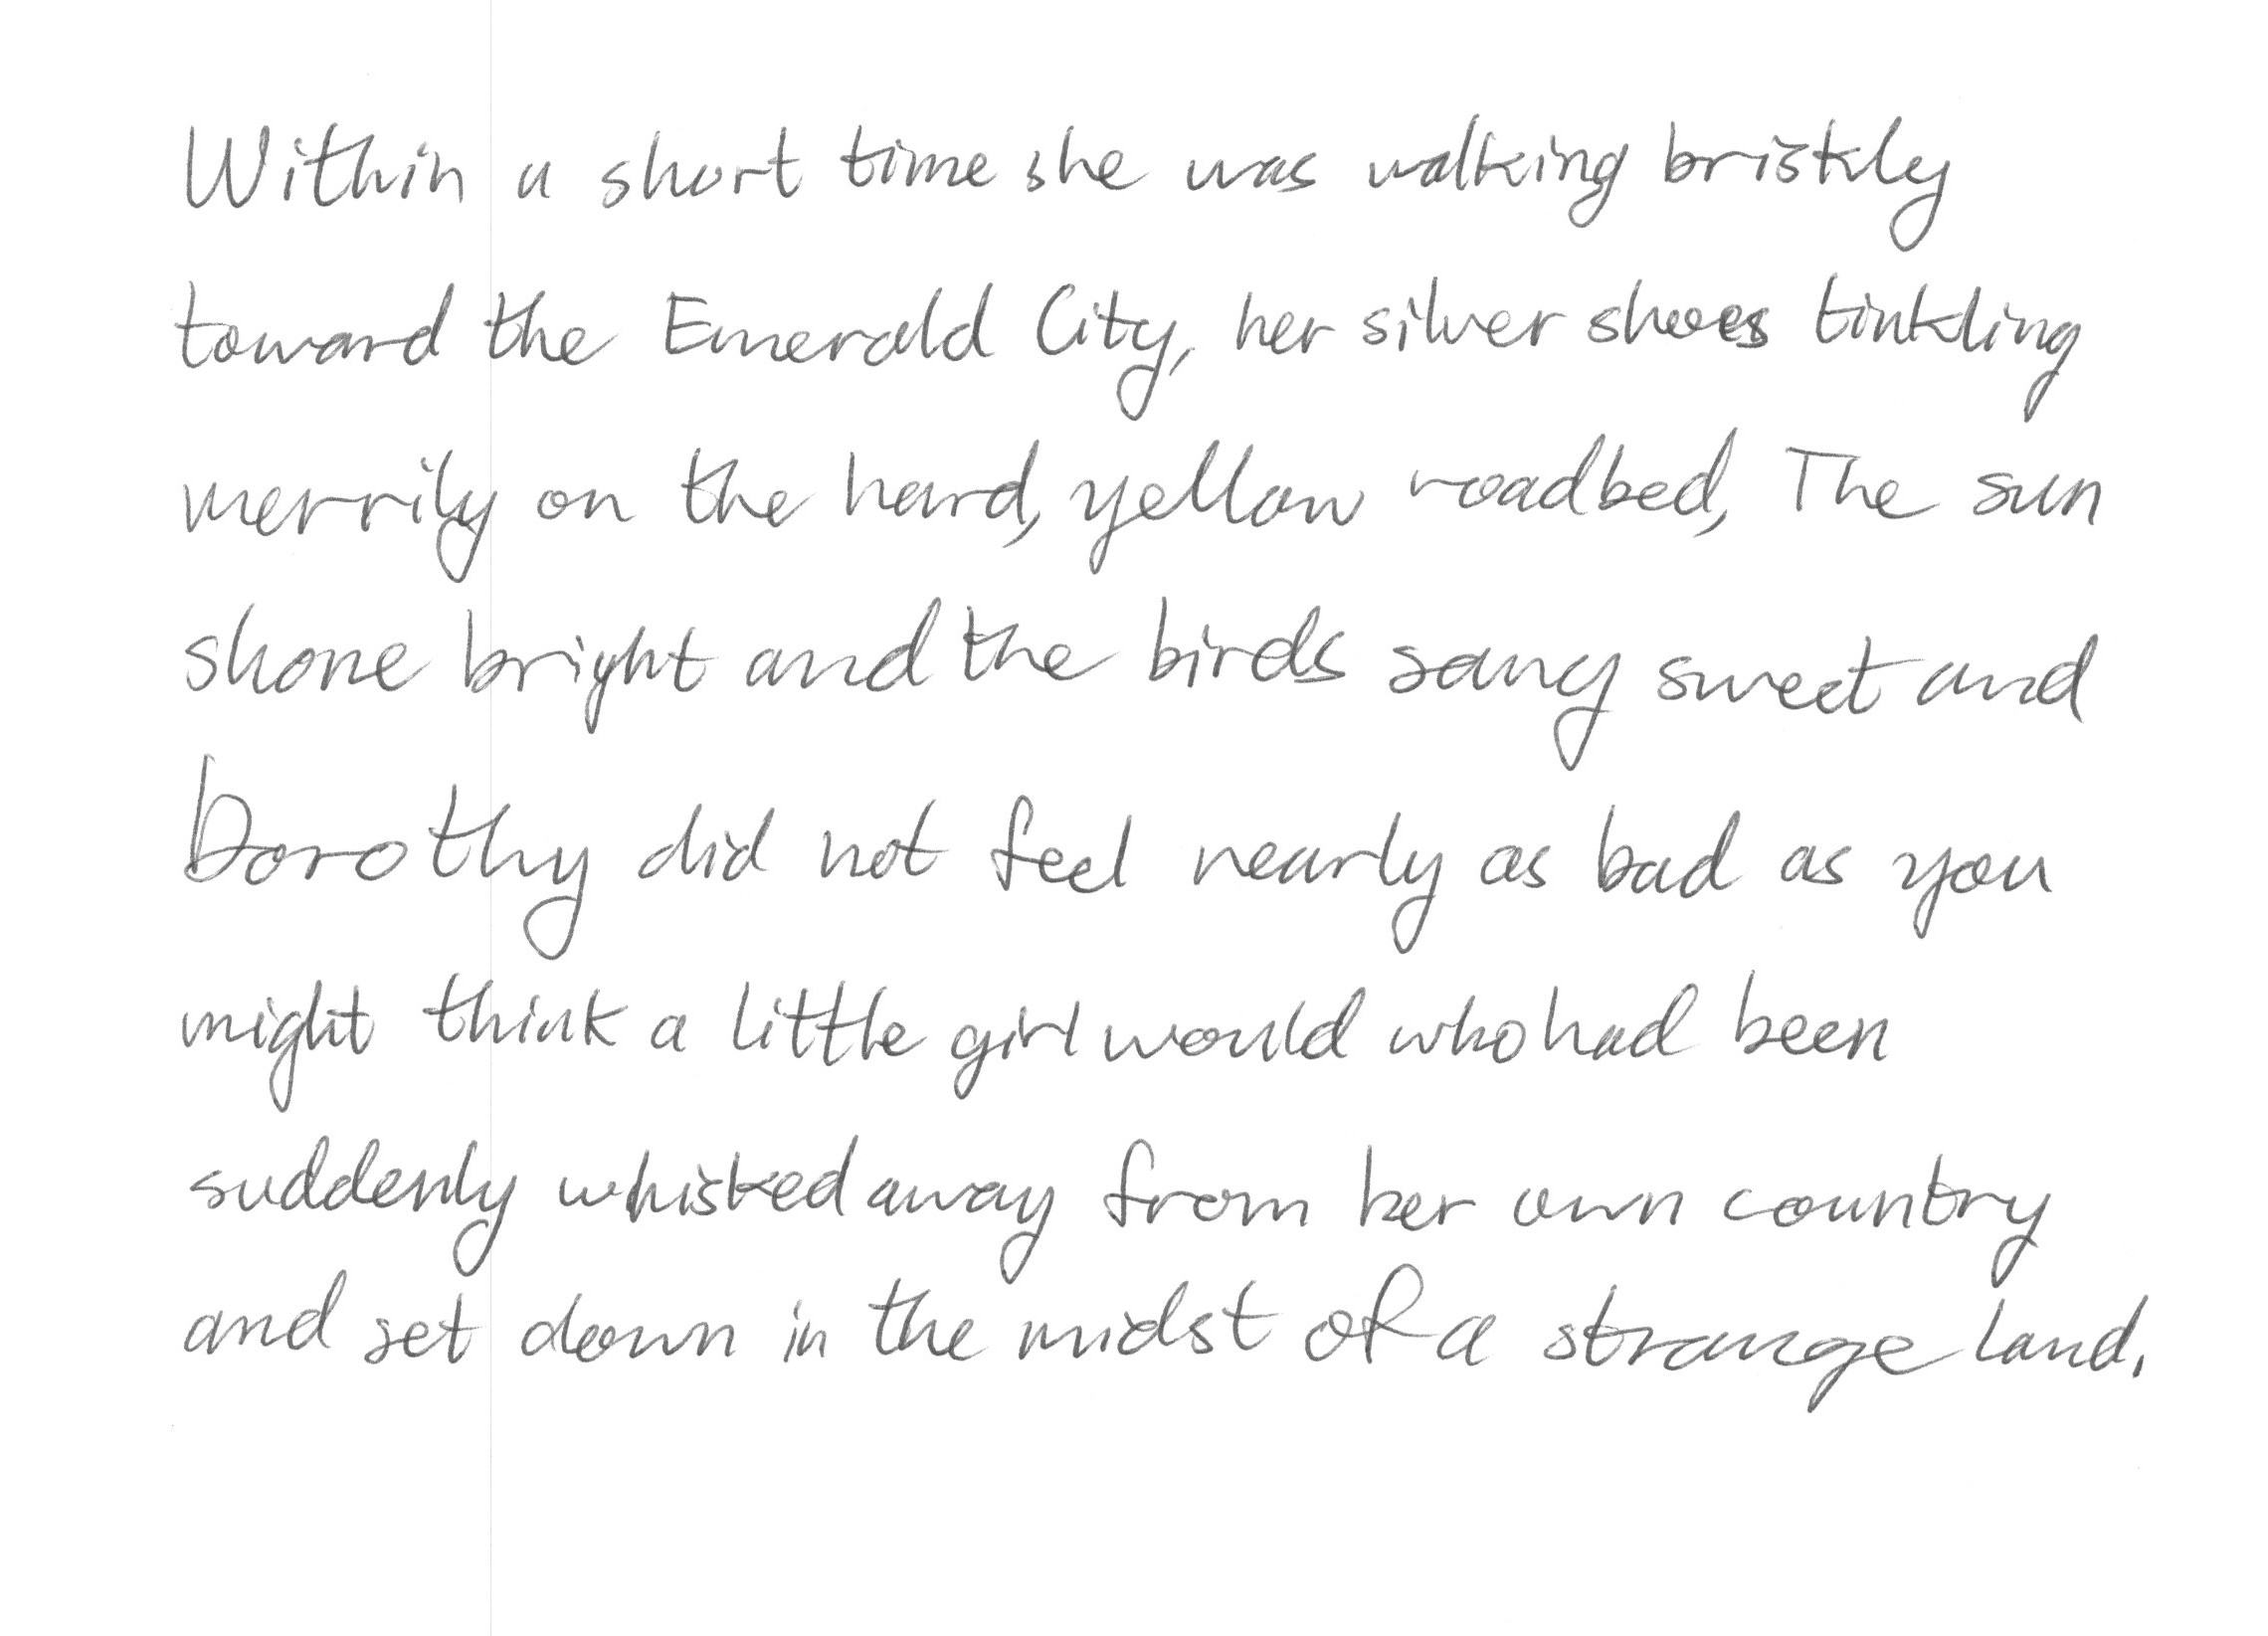 Within a short time she was walking briskly
toward the Emerald City, her silver shoes tinkling
merrily on the hard, yellow roadbed, The sun
shone bright and the birds sang sweet and
Dorothy did not feel nearly as bad as you
might think a little girl would who had been
suddenly whisked away from her own country
and set down in the midst of a strange land.